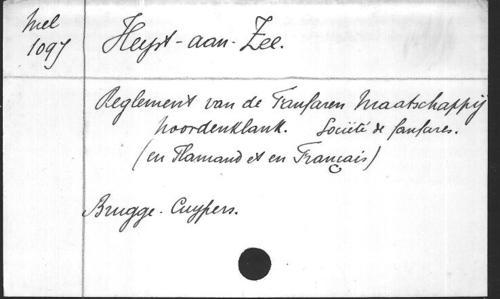 Mel
1097
Heyst-aan-Zee.
Reglement van de Fanfaren Maatschappij
Noordenklank. Société de fanfares.
(en Flamand et en Français)
Brugge. Cuypers.